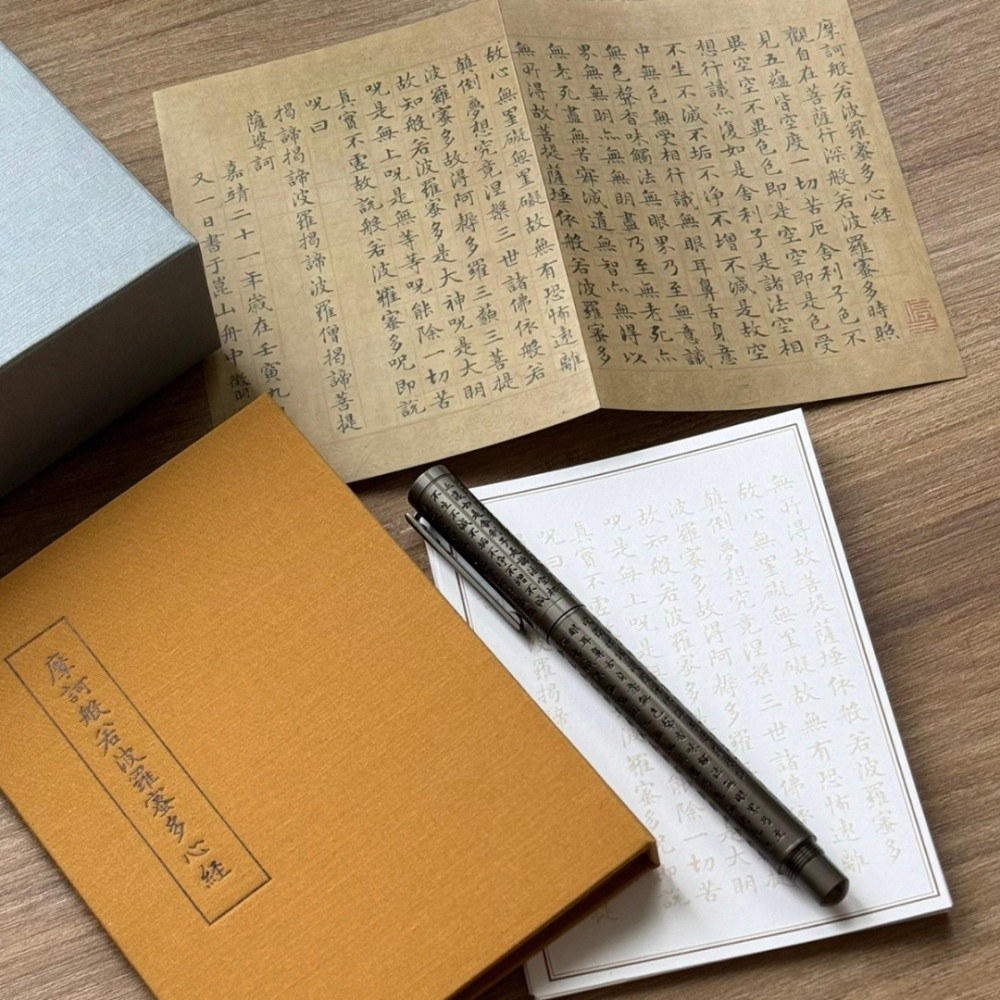 摩訶般若波羅蜜多心経
觀自在菩薩行深般若波羅蜜多時照
見五蘊皆空度一切苦厄舍利子色不
異空空不異色色即是空空即是色受
想行識亦復如是舍利子是諸法空相
不生不滅不垢不淨不增不減是故空
中無色無受相行識無眼耳鼻舌身意
無色聲香味觸法無眼界乃至無意識
界無無明亦無無明盡乃至無老死亦
無老死盡無苦寂滅道無智亦無得以
無所得故菩提薩埵依般若波羅蜜多
故心無罣礙無罣礙故無有恐怖遠離
顛倒夢想究竟涅槃三世諸佛依般若
波羅蜜多故得阿耨多羅三藐三菩提
故知般若波羅蜜多是大神呪是大明
呪是無上呪是無等等呪能除一切苦
真實不虛故說般若波羅蜜多呪即說
呪曰
揭諦揭諦波羅揭諦波羅僧揭諦菩提
薩婆訶
嘉靖二十一年歲在壬寅九
又一日書于崑山舟中徵明
摩訶般若波羅蜜多心経
無所得故菩提薩埵依般若波羅蜜多
故心無罣礙無罣礙故無有恐怖遠離
顛倒夢想究竟涅槃三世諸佛
波羅蜜多故得阿耨多
故知般若波羅
呪是無上呪 能除一切苦
真實不虛 波羅蜜多 即說
呪曰